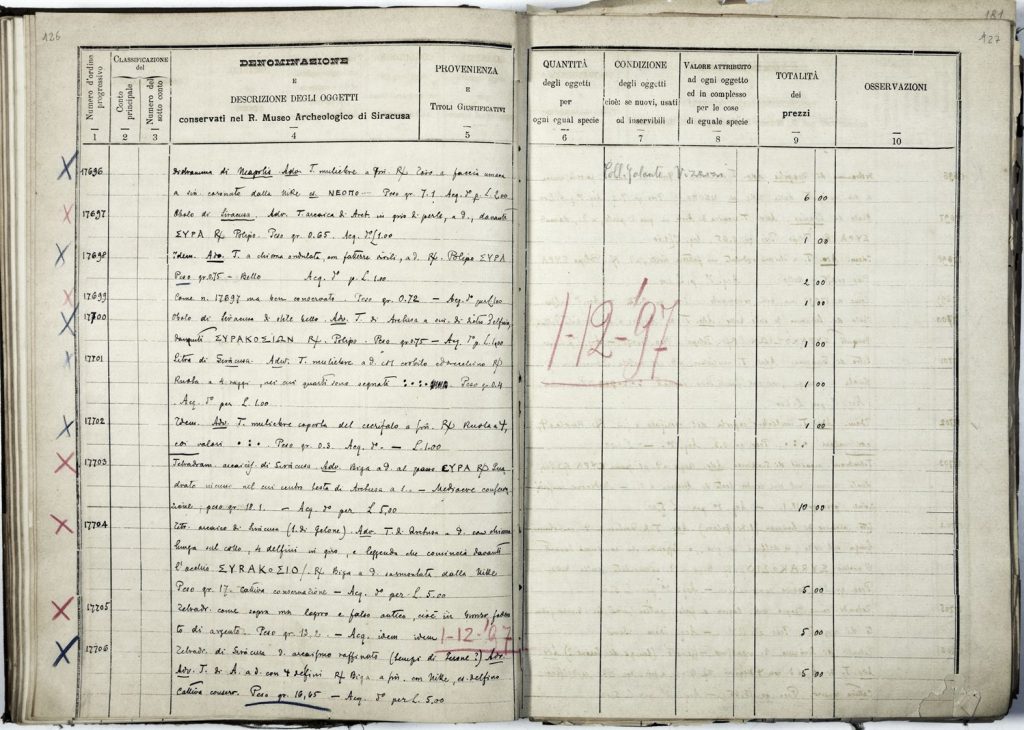 126
Numero d'ordine progressivo
CLASSIFICAZIONE del
Conto principale
Numero del sotto conto
DENOMINAZIONE
E
DESCRIZIONE DEGLI OGGETTI
conservati nel R. Museo Archeologico di Siracusa
PROVENIENZA
E
TITOLI GIUSTIFICATIVI
1 2 3 4 5
17696 Didramma di Neapolis Adv. T. muliebre a
a sin. coronato dalla Nike ΝΕΟΠΟ Peso gr. 7.1 Acq. p. L.
17697 Obolo di Siracusa. Adv. T. arcaica di Aret. in giro di perle, a d., davanti
ΣΥΡΑ R/ Polipo. Peso gr. 0.65. Acq. 1.00
17698 Idem. Adv. T. a chioma ondulata, con fattezze a d. R/. Polipo ΣΥΡΑ
Peso gr. 0.75 — Bello Acq. p. L. 1.00
17699 Come n. 17697 ma ben conservato. Peso gr. 0.72 — Acq.
17700 Obolo di Siracusa di stile bello. Adv. T. di Arethusa a
davanti ΣΥΡΑΚΟΣΙΩΝ R/. Polipo. Peso gr. 0.75 — Acq. p. L. 1.00
17701 Litra di Siracusa. Adv. T. muliebre a d. R/
Ruota a 4 raggi, nei cui quarti sono segnati Peso gr. 0.4
Acq. per L. 1.00
17702 Idem. Adv. T. muliebre coperta del cecrifalo a R/ Ruota a 4,
coi valori Peso gr. 0.3. Acq. — L. 1.00
17703 Tetradram. di Siracusa. Adv. Biga a d. al passo ΣΥΡΑ R/
drato incuso nel cui centro testa di Arethusa a s. — Mediocre conserva
zione, peso gr. 18.1 — Acq. per L. 5,00
17704 arcaico di Siracusa (t. di Gelone). Adv. T. di Arethusa a d. con chioma
lunga sul collo, 4 delfini in giro, e leggenda che comincia davanti
l'occhio ΣΥRΑΚΟΣΙΟ/. R/ Biga a d. sormontata dalla Nike
Peso gr. 17. Cattiva conservazione — Acq. per L. 5.00
17705 Tetradr. come sopra ma logoro e falso antico, cioè in bronzo
to di argento. Peso gr. 13.2. — Acq. idem idem 1-12-'97
17706 Tetradr. di Siracusa d. arcaismo raffinato (tempi di Ierone?) Adv.
Adv. T. di A. a d. con 4 delfini R/ Biga a con Nike, delfino
Cattiva conserv. Peso gr. 16,65 — Acq. per L. 5,00
181
127
QUANTITÀ
degli oggetti
per
ogni egual specie
CONDIZIONE
degli oggetti
cioè: se nuovi, usati
od inservibili
VALORE ATTRIBUITO
ad ogni oggetto
ed in complesso
per le cose
di eguale specie
TOTALITÀ
dei
prezzi
OSSERVAZIONI
6 7 8 9 10
Coll.
6 00
1 00
2 00
1 00
1 00
1 00
1 00
10 00
5 00
5 00
5 00
1-12-'97